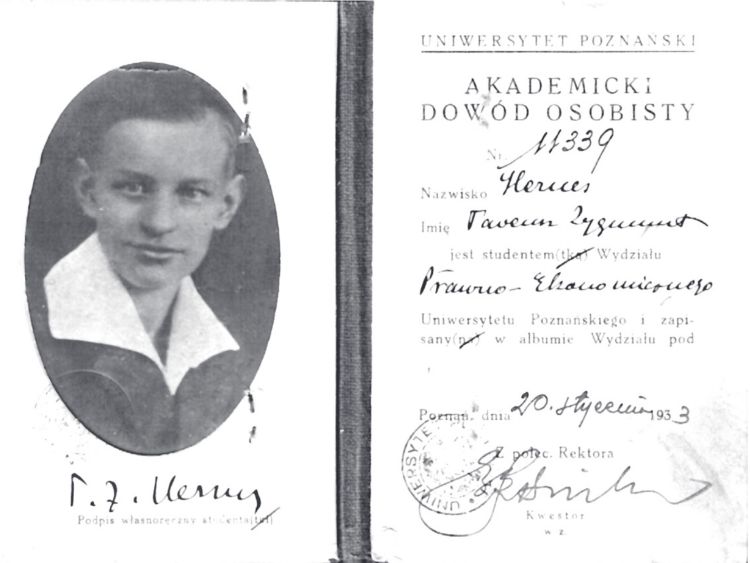 T. Z. Hernes
Podpis własnoręczny studenta(tki)
UNIWERSYTET POZNAŃSKI
AKADEMICKI
DOWÓD OSOBISTY
Nr 11339
Nazwisko Hernes
Imię Tadeusz Zygmunt
jest studentem(tką) Wydziału
Prawno-Ekonomicznego
Uniwersytetu Poznańskiego i zapi-
sany(na) w albumie Wydziału pod
Poznań, dnia 20. stycznia 1933
Z polec. Rektora
UNIWERSYTE
Kwestor
w z